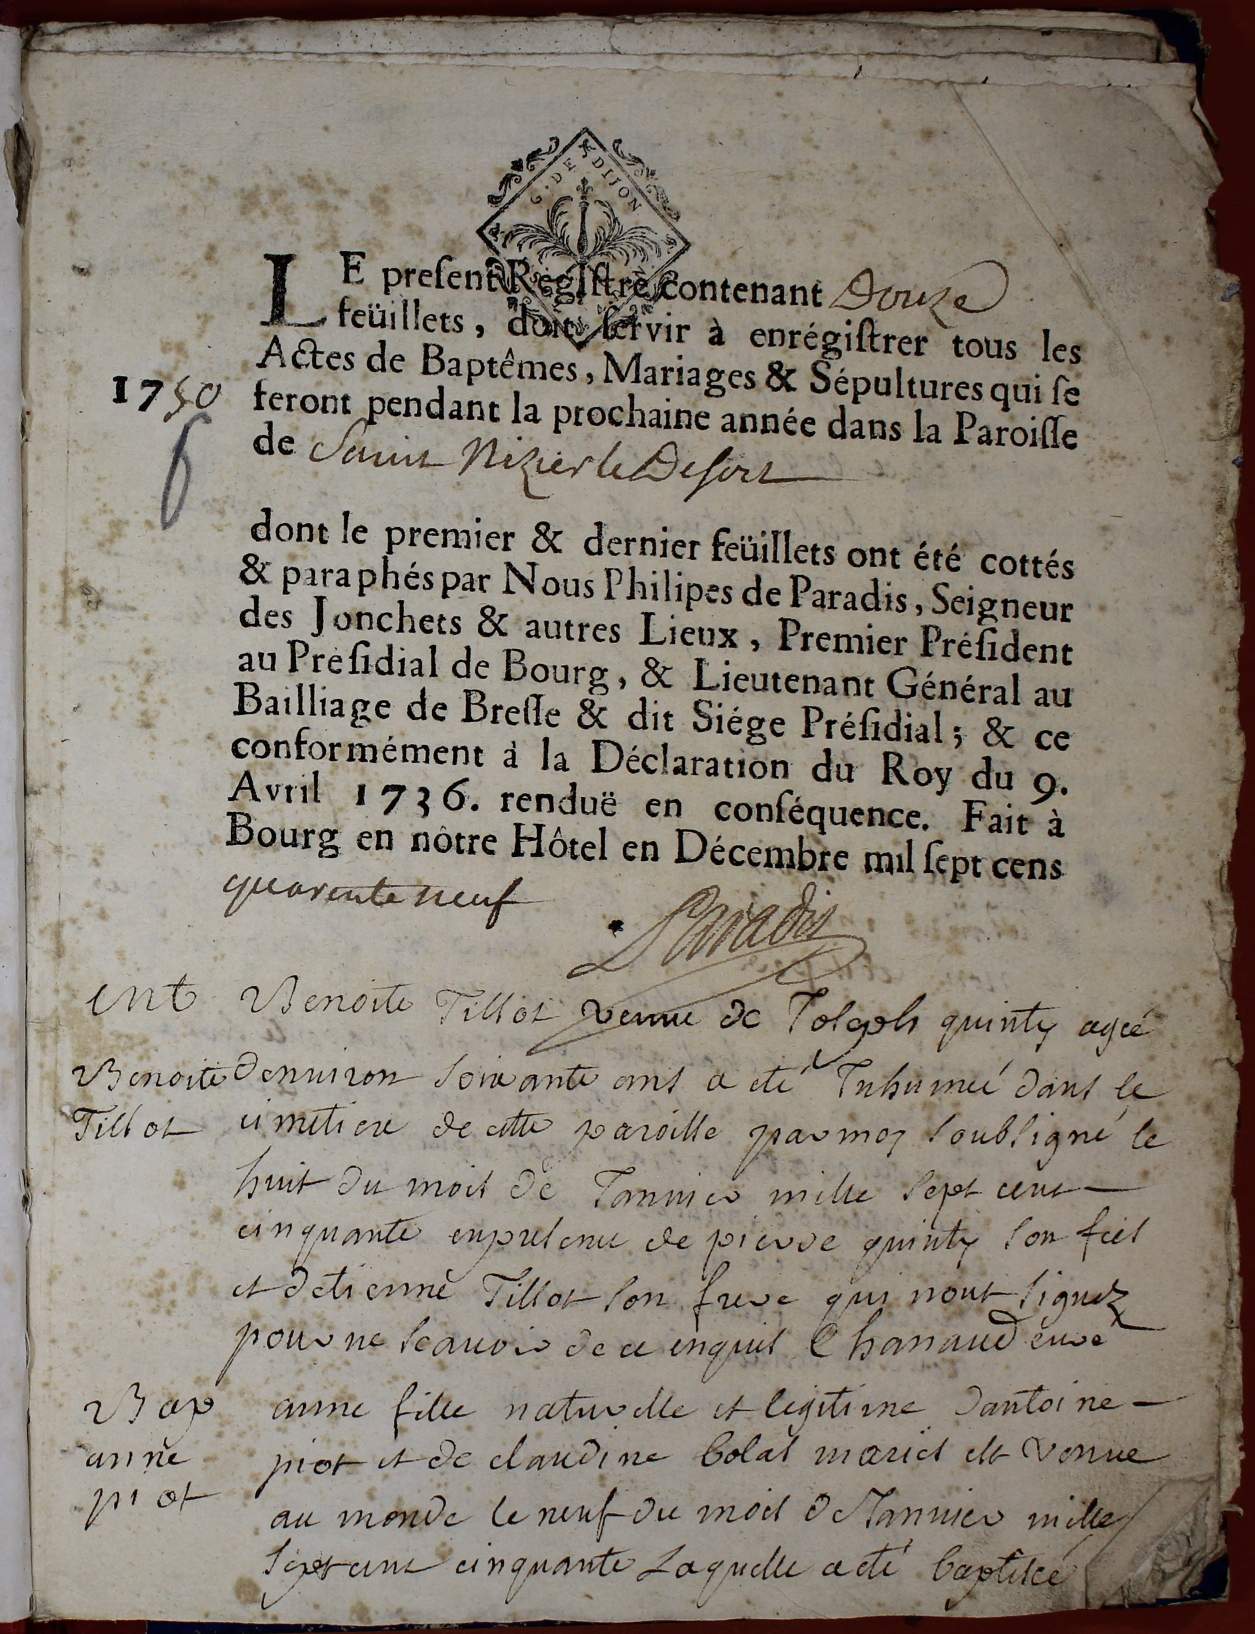 G. DE DIJON
LE preſent Regiſtre contenant Douze
feüillets, doit ſervir à enrégiſtrer tous les
Actes de Baptêmes, Mariages & Sépultures qui ſe
1750 feront pendant la prochaine année dans la Paroiſſe
de Saint Nizier le Desert
dont le premier & dernier feüillets ont été cottés
& paraphés par Nous Philipes de Paradis, Seigneur
des Jonchets & autres Lieux, Premier Préſident
au Préſidial de Bourg, & Lieutenant Général au
Bailliage de Breſſe & dit Siége Préſidial; & ce
conformément à la Déclaration du Roy du 9.
Avril 1736. renduë en conſéquence. Fait à
Bourg en nôtre Hôtel en Décembre mil ſept cens
quarente neuf
Paradis
Ent Benoite Tillot veuve de Joseph quinty agée
Benoite denuiron soixante ans a eté Inhumeé dans le
Tillot cimetiere de cette paroisse par moy soubsigné le
huit du mois de Januier mille sept cent
cinquante enpresence de pierre quinty son fiels
et detienne Tillot son frere qui nont signez
pour ne scauoir de ce enquis Chanaud curé
Bap anne fille naturelle et legitime dantoine
anne piot et de claudine Colas mariés est venue
piot au monde le neuf du mois de Januier mille
sept cent cinquante Laquelle a eté baptisée